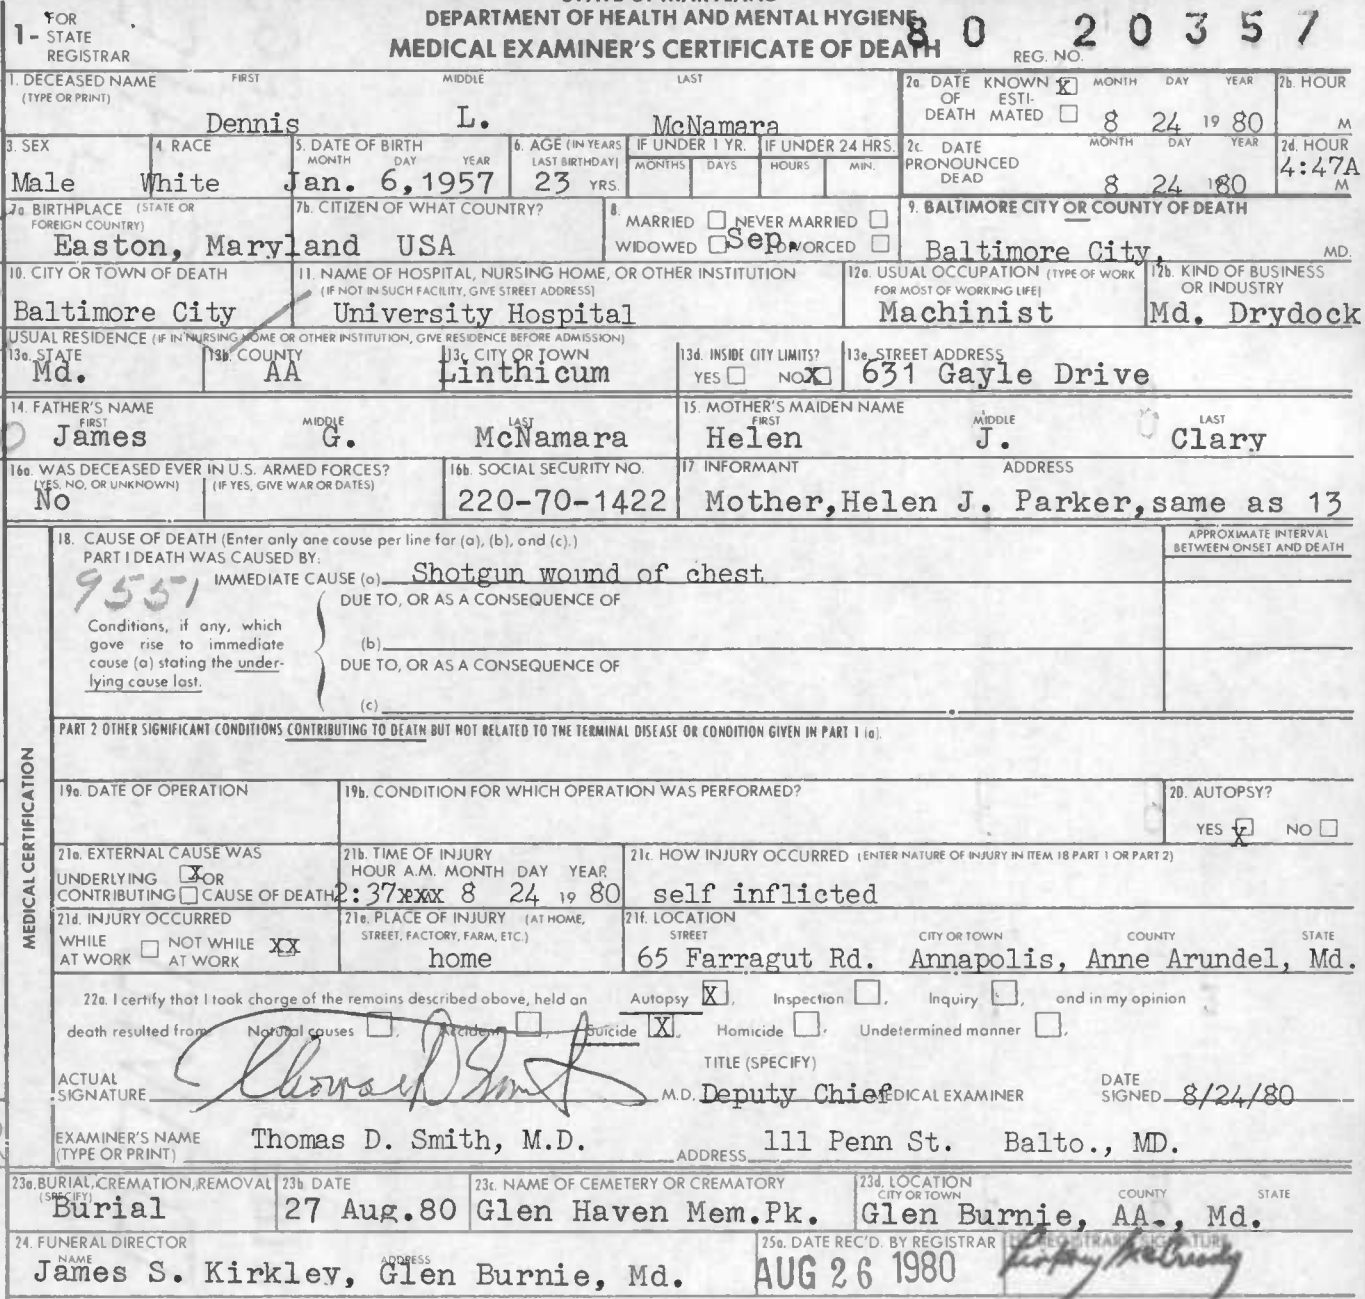 FOR
1- STATE
REGISTRAR
DEPARTMENT OF HEALTH AND MENTAL HYGIENE
MEDICAL EXAMINER'S CERTIFICATE OF DEATH
80 20357
REG. NO.
1. DECEASED NAME FIRST MIDDLE LAST
(TYPE OR PRINT)
Dennis L. McNamara
2a. DATE KNOWN X MONTH DAY YEAR
OF ESTI-
DEATH MATED 8 24 19 80
2b. HOUR
M
3. SEX
Male
4. RACE
White
5. DATE OF BIRTH
MONTH DAY YEAR
Jan. 6,1957
6. AGE (IN YEARS
LAST BIRTHDAY)
23 YRS.
IF UNDER 1 YR.
MONTHS DAYS
IF UNDER 24 HRS.
HOURS MIN.
2c. DATE MONTH DAY YEAR
PRONOUNCED
DEAD 8 24 1980
2d. HOUR
4:47A
M
7a. BIRTHPLACE (STATE OR
FOREIGN COUNTRY)
Easton, Maryland
7b. CITIZEN OF WHAT COUNTRY?
USA
8.
MARRIED NEVER MARRIED
WIDOWED Sep. DIVORCED
9. BALTIMORE CITY OR COUNTY OF DEATH
Baltimore City, MD.
10. CITY OR TOWN OF DEATH
Baltimore City
11. NAME OF HOSPITAL, NURSING HOME, OR OTHER INSTITUTION
(IF NOT IN SUCH FACILITY, GIVE STREET ADDRESS)
University Hospital
12a. USUAL OCCUPATION (TYPE OF WORK
FOR MOST OF WORKING LIFE)
Machinist
12b. KIND OF BUSINESS
OR INDUSTRY
Md. Drydock
USUAL RESIDENCE (IF IN NURSING HOME OR OTHER INSTITUTION, GIVE RESIDENCE BEFORE ADMISSION)
13a. STATE
Md.
13b. COUNTY
AA
13c. CITY OR TOWN
Linthicum
13d. INSIDE CITY LIMITS?
YES NO X
13e. STREET ADDRESS
631 Gayle Drive
14. FATHER'S NAME
FIRST MIDDLE LAST
James G. McNamara
15. MOTHER'S MAIDEN NAME
FIRST MIDDLE LAST
Helen J. Clary
16a. WAS DECEASED EVER IN U.S. ARMED FORCES?
(YES, NO, OR UNKNOWN) (IF YES, GIVE WAR OR DATES)
No
16b. SOCIAL SECURITY NO.
220-70-1422
17. INFORMANT ADDRESS
Mother,Helen J. Parker,same as 13
18. CAUSE OF DEATH (Enter only one cause per line for (a), (b), and (c).)
PART I DEATH WAS CAUSED BY:
APPROXIMATE INTERVAL
BETWEEN ONSET AND DEATH
9551
IMMEDIATE CAUSE (a) Shotgun wound of chest
DUE TO, OR AS A CONSEQUENCE OF
Conditions, if any, which
gave rise to immediate
cause (a) stating the under-
lying cause last.
(b)
DUE TO, OR AS A CONSEQUENCE OF
(c)
PART 2 OTHER SIGNIFICANT CONDITIONS CONTRIBUTING TO DEATH BUT NOT RELATED TO THE TERMINAL DISEASE OR CONDITION GIVEN IN PART 1 (a).
MEDICAL CERTIFICATION
19a. DATE OF OPERATION
19b. CONDITION FOR WHICH OPERATION WAS PERFORMED?
20. AUTOPSY?
YES X NO
21a. EXTERNAL CAUSE WAS
UNDERLYING X OR
CONTRIBUTING CAUSE OF DEATH
21b. TIME OF INJURY
HOUR A.M. MONTH DAY YEAR
2:37xxxx 8 24 19 80
21c. HOW INJURY OCCURRED (ENTER NATURE OF INJURY IN ITEM 18 PART 1 OR PART 2)
self inflicted
21d. INJURY OCCURRED
WHILE NOT WHILE XX
AT WORK AT WORK
21e. PLACE OF INJURY (AT HOME,
STREET, FACTORY, FARM, ETC.)
home
21f. LOCATION
STREET CITY OR TOWN COUNTY STATE
65 Farragut Rd. Annapolis, Anne Arundel, Md.
22a. I certify that I took charge of the remains described above, held an Autopsy X, Inspection , Inquiry , and in my opinion
death resulted from Natural causes , Accident , Suicide X, Homicide , Undetermined manner .
TITLE (SPECIFY)
ACTUAL
SIGNATURE Thomas D Smith M.D. Deputy Chief MEDICAL EXAMINER
DATE
SIGNED 8/24/80
EXAMINER'S NAME
(TYPE OR PRINT) Thomas D. Smith, M.D.
ADDRESS 111 Penn St. Balto., MD.
23a. BURIAL, CREMATION, REMOVAL
(SPECIFY)
Burial
23b DATE
27 Aug.80
23c. NAME OF CEMETERY OR CREMATORY
Glen Haven Mem.Pk.
23d. LOCATION
CITY OR TOWN COUNTY STATE
Glen Burnie, AA., Md.
24. FUNERAL DIRECTOR
NAME ADDRESS
James S. Kirkley, Glen Burnie, Md.
25a. DATE REC'D. BY REGISTRAR
AUG 26 1980
REGISTRAR'S SIGNATURE